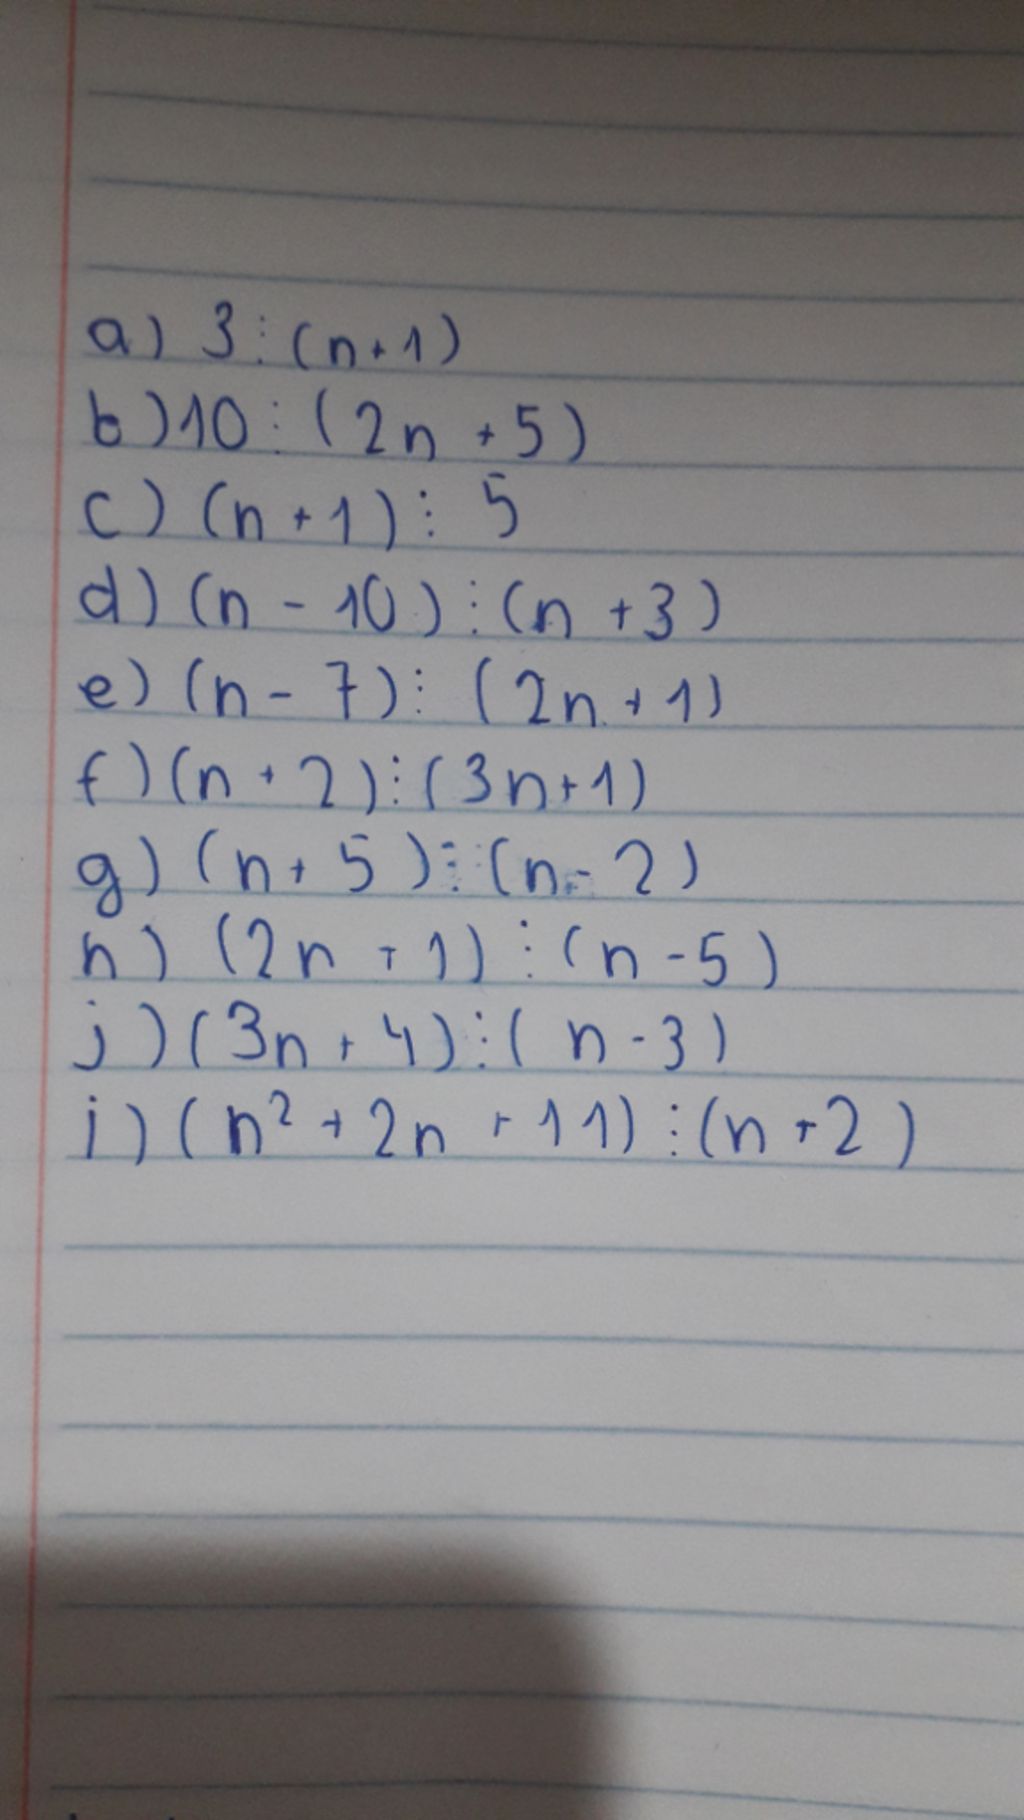 a) 3 ⋮ (n+1)
b) 10 ⋮ (2n + 5)
c) (n + 1) ⋮ 5
d) (n - 10) ⋮ (n + 3)
e) (n - 7) ⋮ (2n + 1)
f) (n + 2) ⋮ (3n+1)
g) (n + 5) ⋮ (n - 2)
h) (2n + 1) ⋮ (n - 5)
j) (3n + 4) ⋮ (n - 3)
i) (n² + 2n + 11) ⋮ (n + 2)